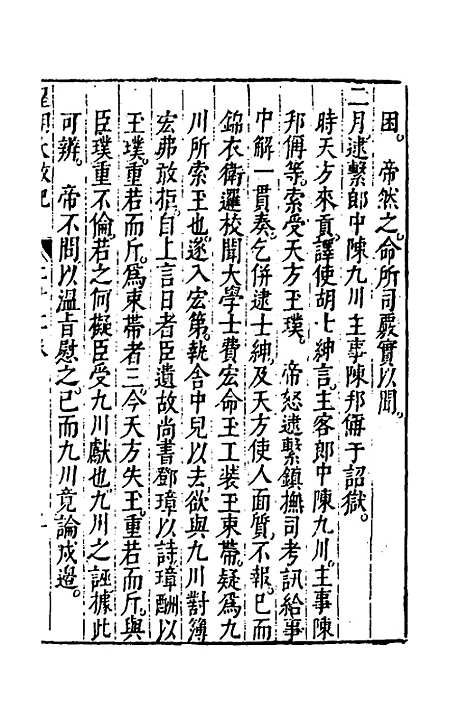 困。帝然之。命所司覈實以聞。
二月逮繫郎中陳九川主事陳邦偁于詔獄。
時天方來貢。譯使胡士紳言。主客郎中陳九川。主事陳
邦偁等。索受天方玉璞。帝怒逮繫鎮撫司考訊給事
中解一貫奏乞併逮士紳。及天方使人面質。不報。已而
錦衣衛邏校聞大學士費宏命玉工裝玉束帶。疑為九
川所索玉也遂入宏第。執舍中兒以去欲與九川對簿
宏弗敢拒。自上言日者臣遺故尚書鄧璋以詩。璋酬以
玉璞。重若而斤。為束帶者三。今天方失玉。重若而斤。與
臣璞重不倫。若之何擬臣受九川獻也九川之誣據此
可辨。帝不問。以溫旨慰之。已而九川竟論戍邊。